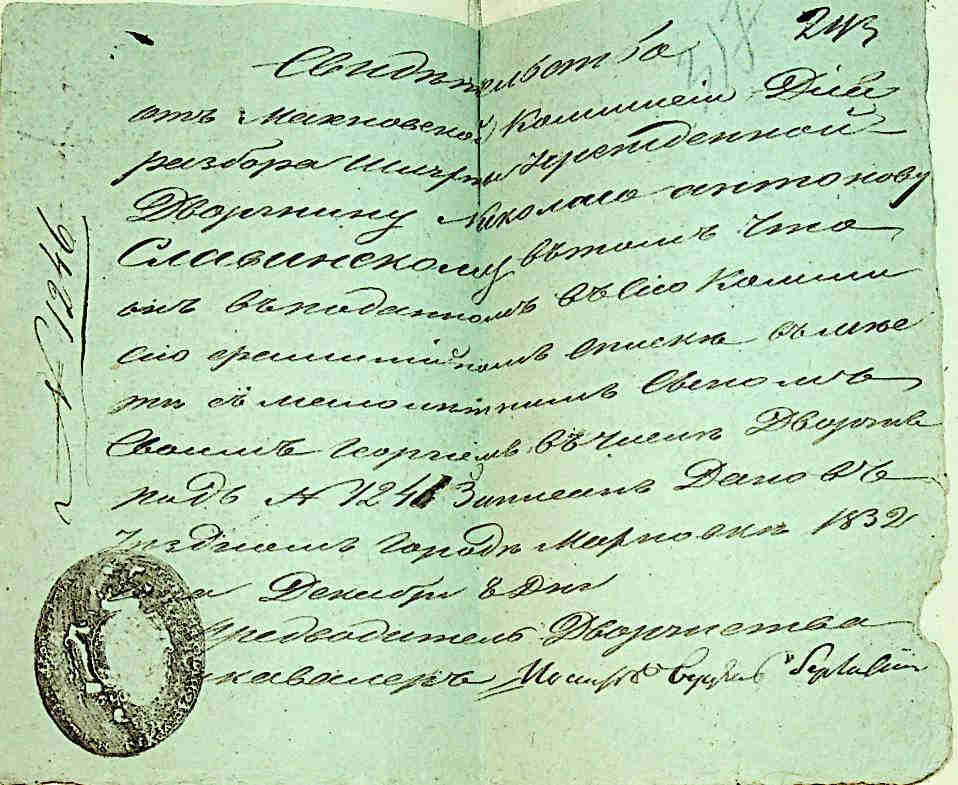 243
218
Свидѣтельство
отъ Махновской Коммисіи Для
разбора Шляхты Учрежденной
Дворянину Николаю Антонову
Славинскому въ томъ Что
онъ въ поданномъ въ Сію Комми
сію фамилійномъ Спискѣ вмѣс
тѣ съ малолѣтнимъ Сыномъ
Своимъ Георгіемъ въ числѣ Дворянъ
подъ № 1246 Записанъ Дано въ
Уѣздномъ городѣ Махновкѣ 1832
года Декабря Дня
Предводитель Дворянства
и кавалеръ Иосифъ
№ 1246